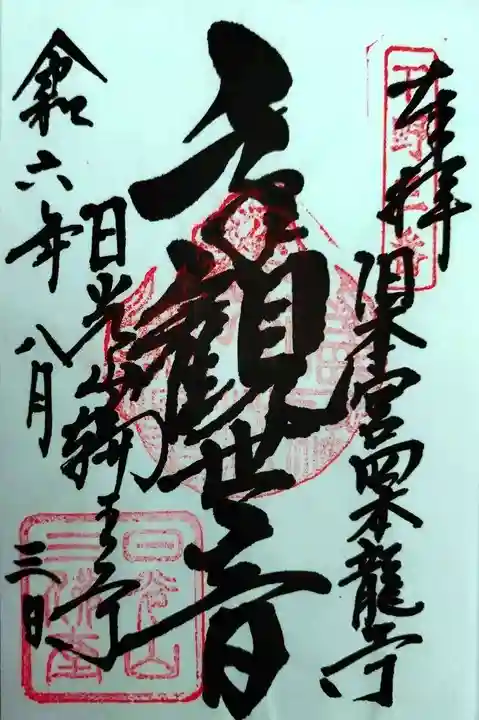 奉拝
旧本宮四本龍寺
千手観世音
日光山輪王寺
令和六年八月三日
日光山
三佛堂